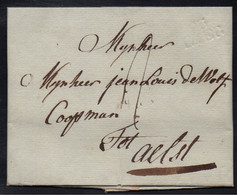 Mynheer
Mynheer jean Louis de Wolf
Coopman
Tot
aelst